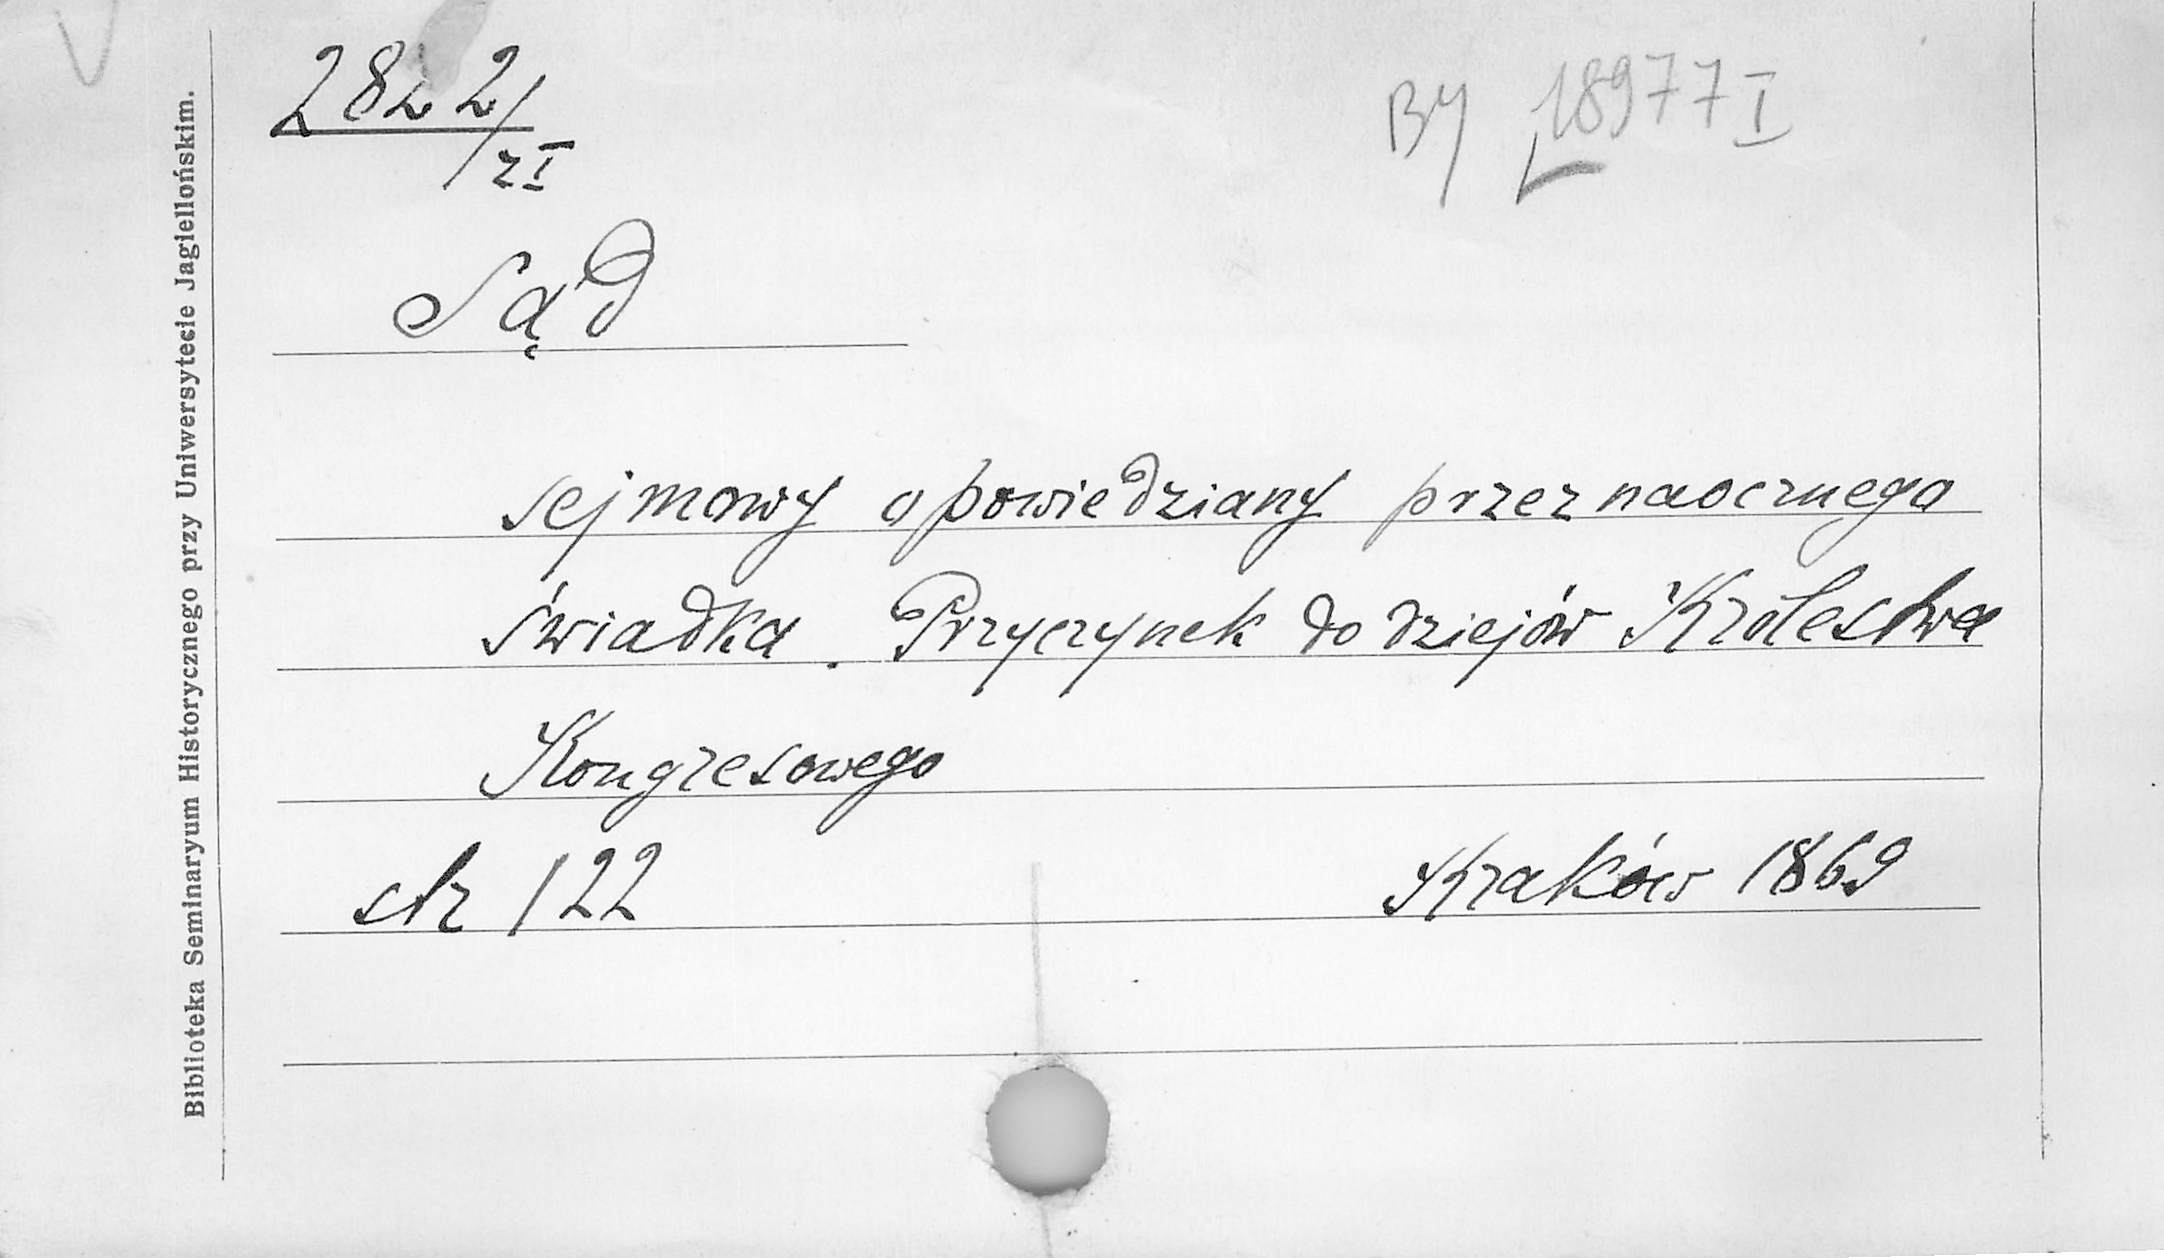 2822/zI
By 18977 I
Sąd
sejmowy opowiedziany przez naocznego
świadka. Przyczynek do dziejów Królestwa
Kongresowego
str 122
Kraków 1869
Biblioteka Seminaryum Historycznego przy Uniwersytecie Jagiellońskim.